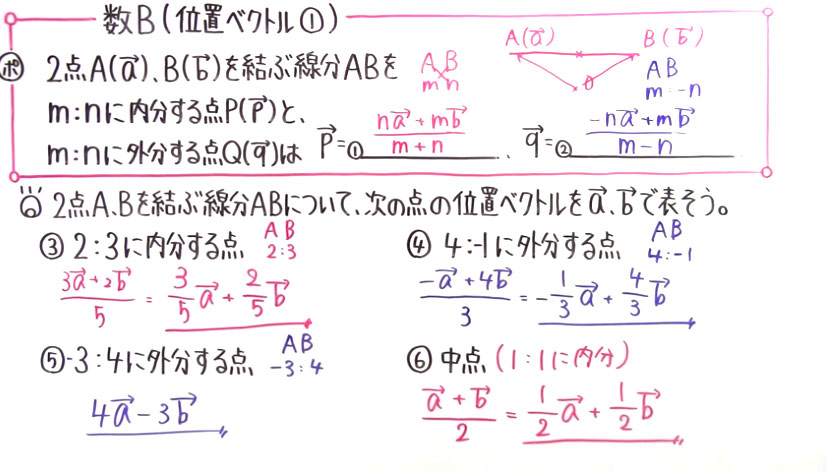 数B(位置ベクトル①)
ポ 2点A(a→)、B(b→)を結ぶ線分ABを
m:nに内分する点P(p→)と、
m:nに外分する点Q(q→)は p→=①(na→+mb→)/(m+n)、q→=②(-na→+mb→)/(m-n)
A B
m n
A(a→) B(b→)
O
A B
m : -n
2点A、Bを結ぶ線分ABについて、次の点の位置ベクトルをa→、b→で表そう。
③ 2:3に内分する点 A B
2:3
(3a→+2b→)/5 = 3/5 a→ + 2/5 b→
④ 4:-1に外分する点 A B
4:-1
(-a→+4b→)/3 = -1/3 a→ + 4/3 b→
⑤ -3:4に外分する点 A B
-3:4
4a→-3b→
⑥ 中点 (1:1に内分)
(a→+b→)/2 = 1/2 a→ + 1/2 b→